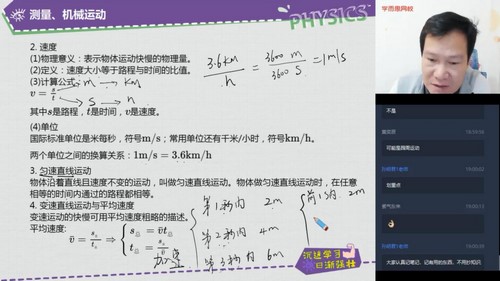 测量、机械运动
PHYSICS
学而思网校
2. 速度
(1)物理意义：表示物体运动快慢的物理量。
(2)定义：速度大小等于路程与时间的比值。
(3)计算公式： m → km
v = s/t
s → h
其中s是路程，t是时间，v是速度。
3.6km/h = 3600m/3600s = 1m/s
(4)单位
国际标准单位是米每秒，符号m/s；常用单位还有千米/小时，符号km/h。
两个单位之间的换算关系：1m/s = 3.6km/h
3. 匀速直线运动
物体沿着直线且速度不变的运动，叫做匀速直线运动。物体做匀速直线运动时，在任意
相等的时间内通过的路程都相等。
4. 变速直线运动与平均速度
变速运动的快慢可用平均速度粗略的描述。
平均速度：
第1秒内 2m
第2秒内 4m
第3秒内 6m
前1s内 2m
沉迷学习
日渐强壮
不是
可能是蹦跑运动
划重点